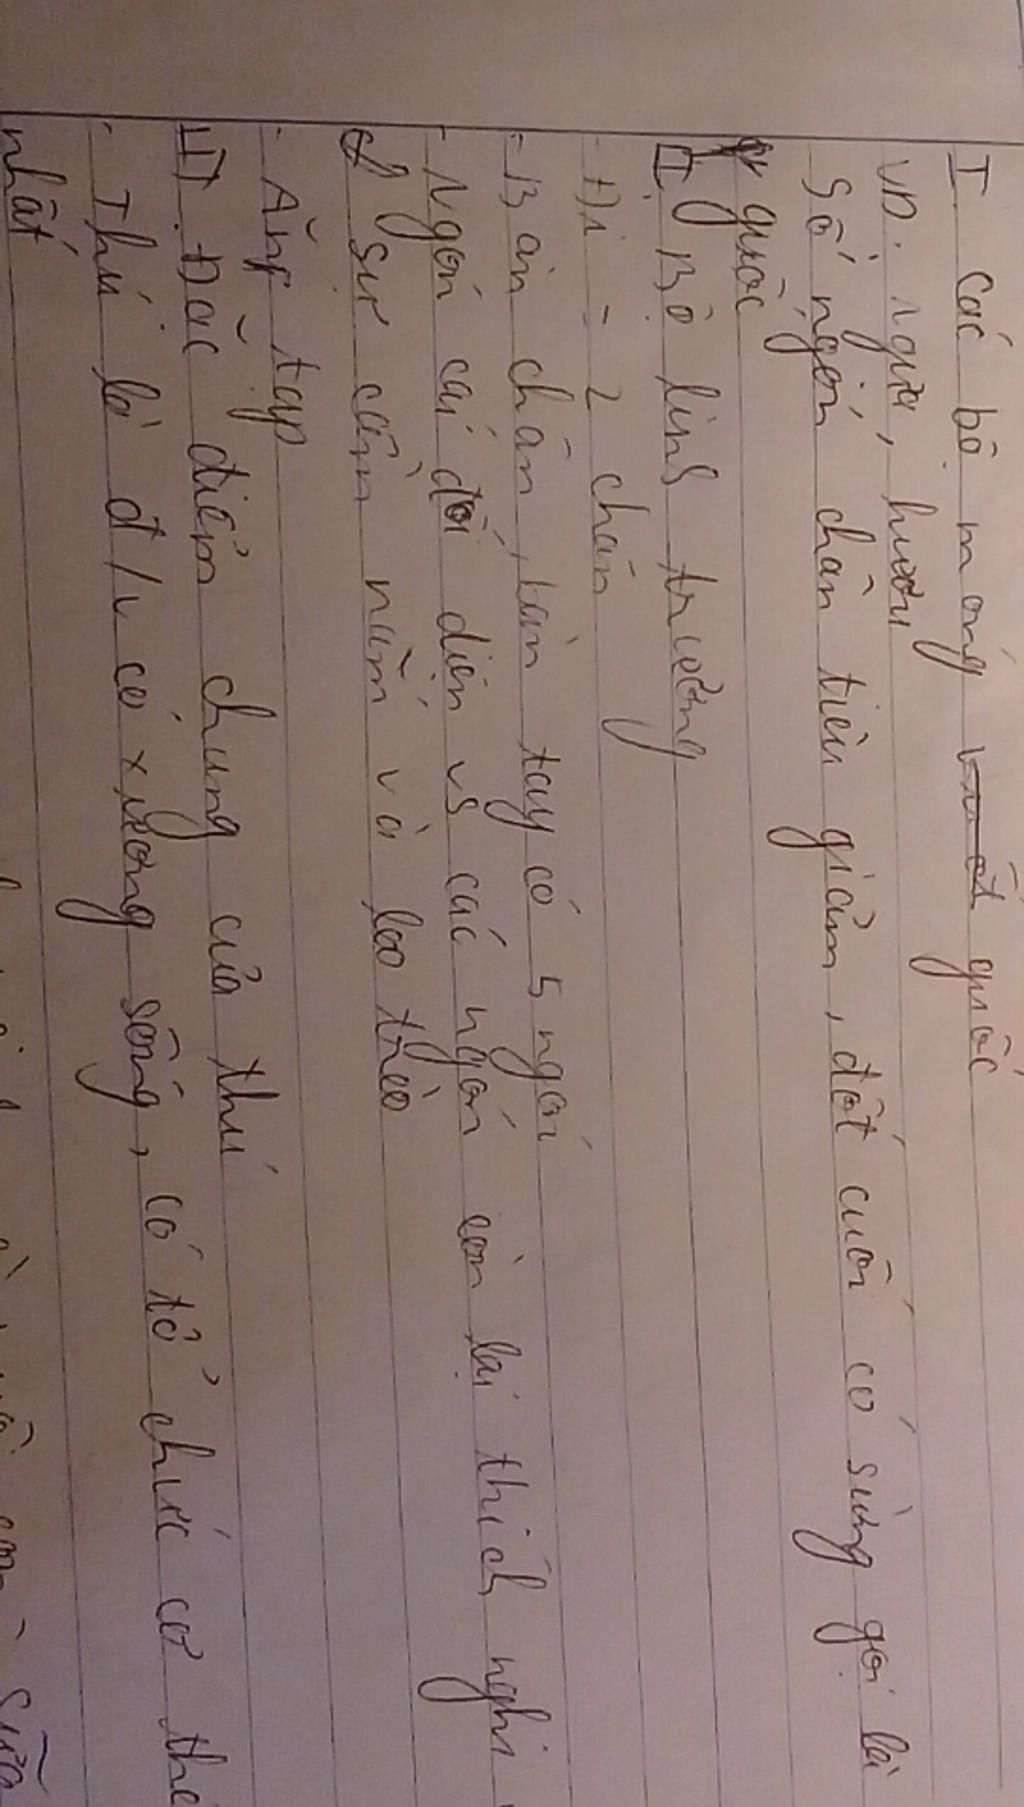 I Các bộ móng quốc
VD: ngựa, hươu
Số ngón chân tiêu giảm, đốt cuối có sừng gọi là
quốc
II. Bộ linh trưởng
- Đi = 2 chân
- Bàn chân, bàn tay có 5 ngón
- Ngón cái đối diện vs các ngón còn lại thích nghi
sự cầm nắm và leo trèo
- Ăn tạp
III. Đặc điểm chung của thú
- Thú là đ/v có xương sống, có tổ chức cơ thể
nhất
sữa